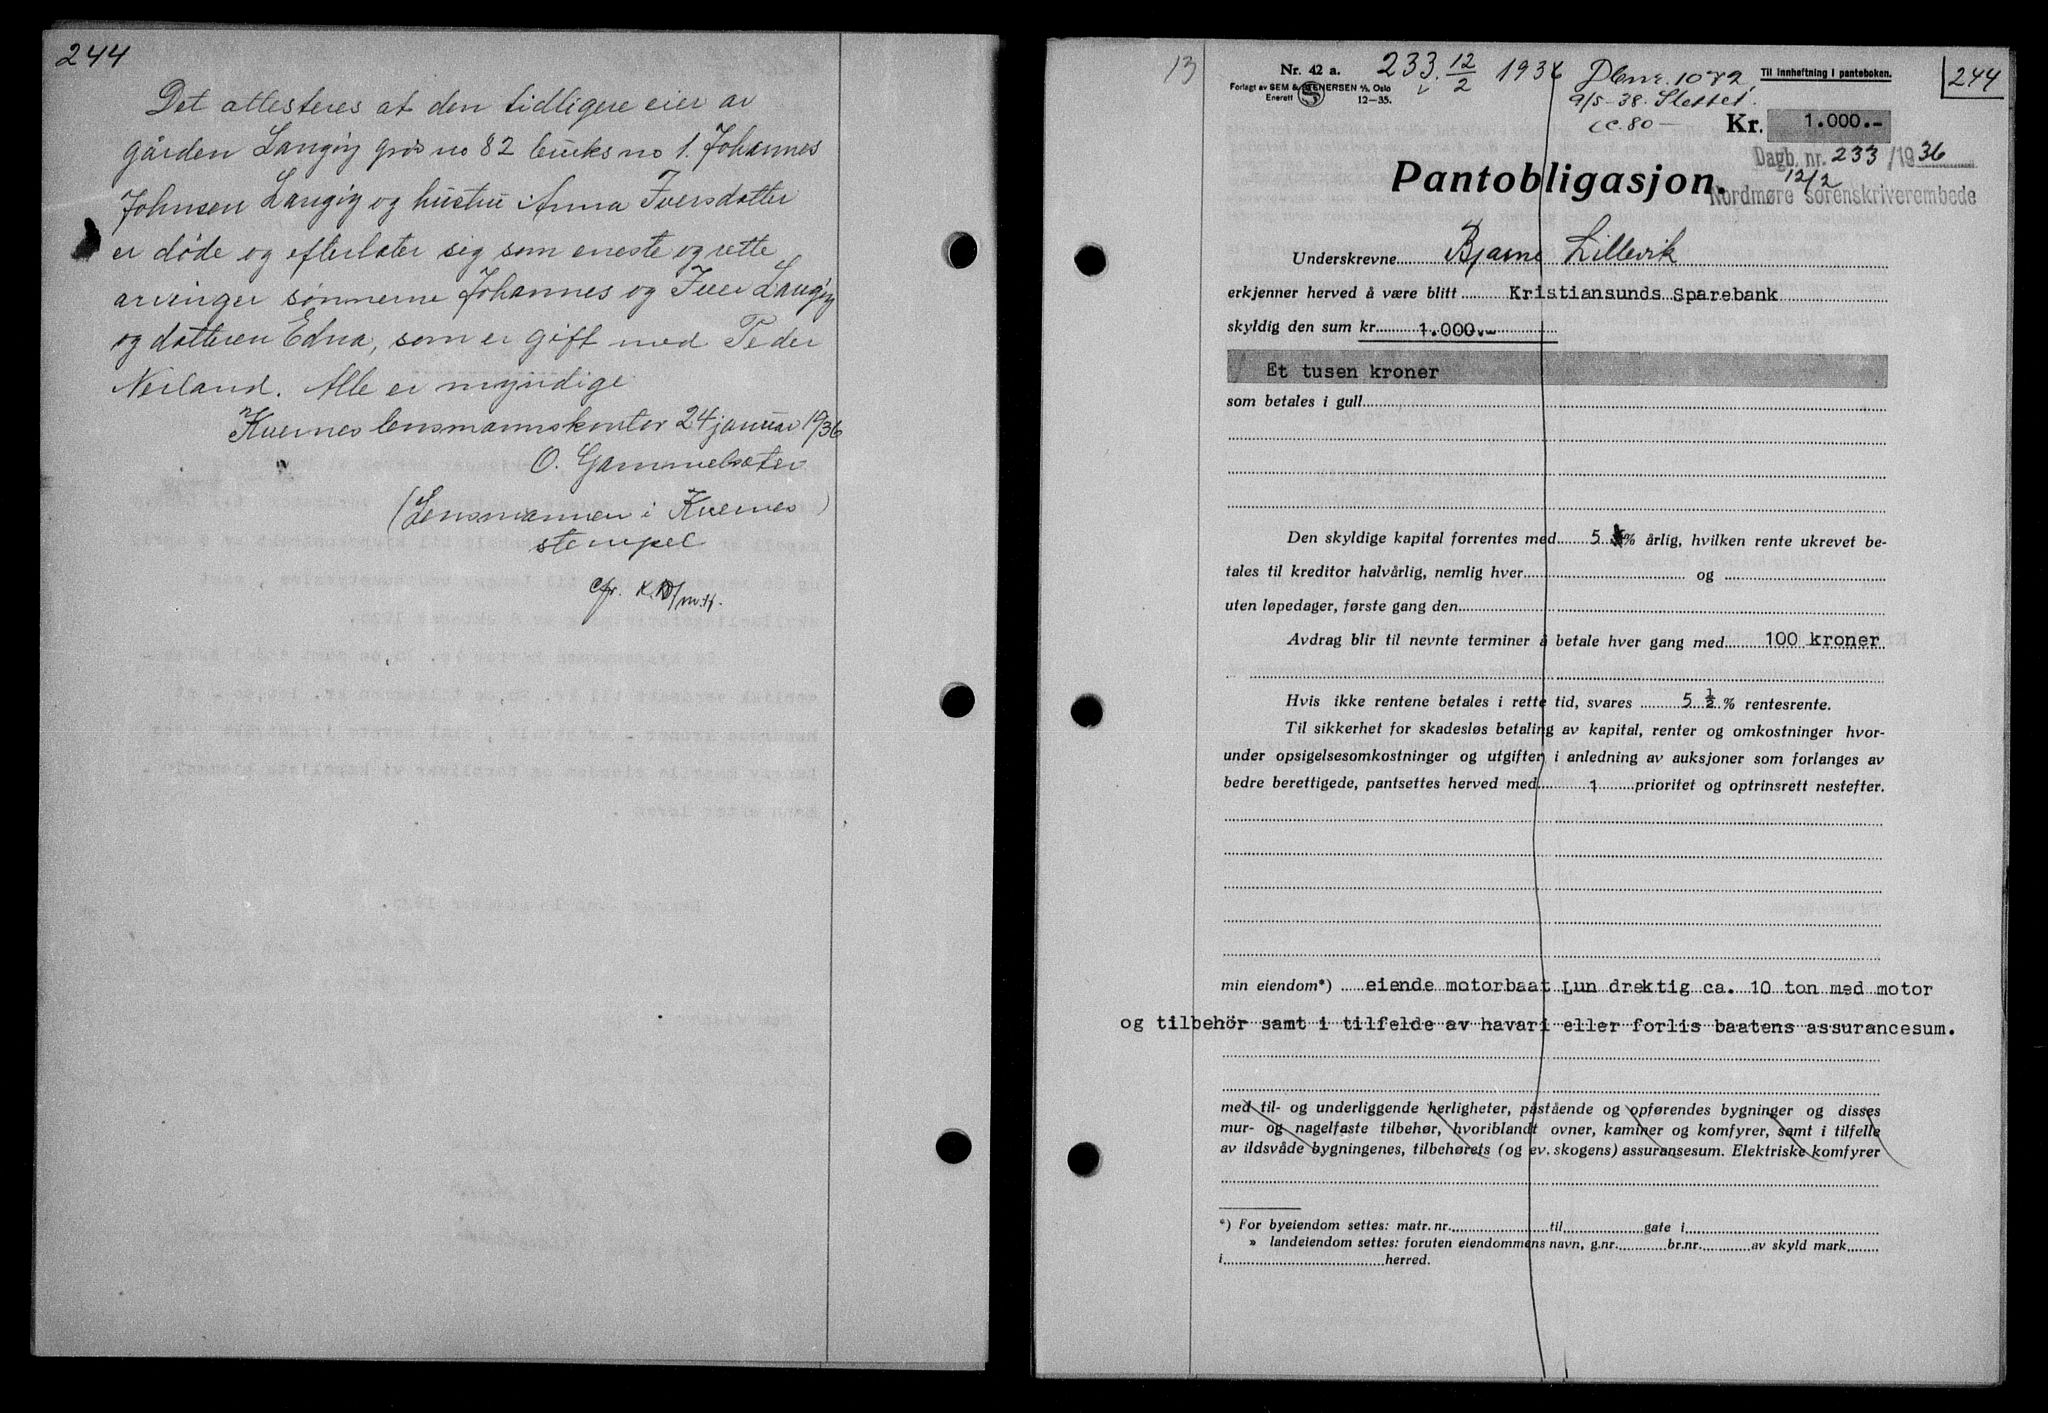 244
Det attesteres at den tidligere eier av
gården Langöy grds no 82 bruks no 1. Johannes
Johnsen Langöy og hustru Anna Iversdatter
er døde og efterlater sig som eneste og rette
arvinger sønnerne Johannes og Iver Langöy
og datteren Edna, som er gift med Peder
Neiland. Alle er myndige
Kvernes lensmannskontor 24 januar 1936
O. Gammelsæter
(Lensmannen i Kvernes)
stempel
cfr.
13
Nr. 42 a.
Forlagt av SEM & STENERSEN A/S, Oslo
Enerett S 12-35.
233. 12/2 1936
Dbnr. 1072
9/5-38. Slettet.
cc. 80 —
Til innheftning i panteboken.
244
Kr. 1.000.-
Dagb. nr. 233/1936
12/2
Nordmøre sorenskriverembede
Pantobligasjon.
Underskrevne Bjarne Lillevik
erkjenner herved å være blitt Kristiansunds Sparebank
skyldig den sum kr. 1.000.--
Et tusen kroner
som betales i gull
Den skyldige kapital forrentes med 5 % årlig, hvilken rente ukrevet be-
tales til kreditor halvårlig, nemlig hver og
uten løpedager, første gang den
Avdrag blir til nevnte terminer å betale hver gang med 100 kroner
Hvis ikke rentene betales i rette tid, svares 5 ½ % rentesrente.
Til sikkerhet for skadesløs betaling av kapital, renter og omkostninger hvor-
under opsigelsesomkostninger og utgifter i anledning av auksjoner som forlanges av
bedre berettigede, pantsettes herved med 1 prioritet og optrinsrett nestefter.
min eiendom*) eiende motorbaat Lun drektig ca. 10 ton med motor
og tilbehör samt i tilfelde av havari eller forlis baatens assurancesum.
med til- og underliggende herligheter, påstående og opførendes bygninger og disses
mur- og nagelfaste tilbehør, hvoriblandt ovner, kaminer og komfyrer, samt i tilfelle
av ildsvåde bygningenes, tilbehørets (og ev. skogens) assuransesum. Elektriske komfyrer
*) For byeiendom settes: matr. nr. til gate i
» landeiendom settes: foruten eiendommens navn, g.nr. br.nr. av skyld mark
i herred.